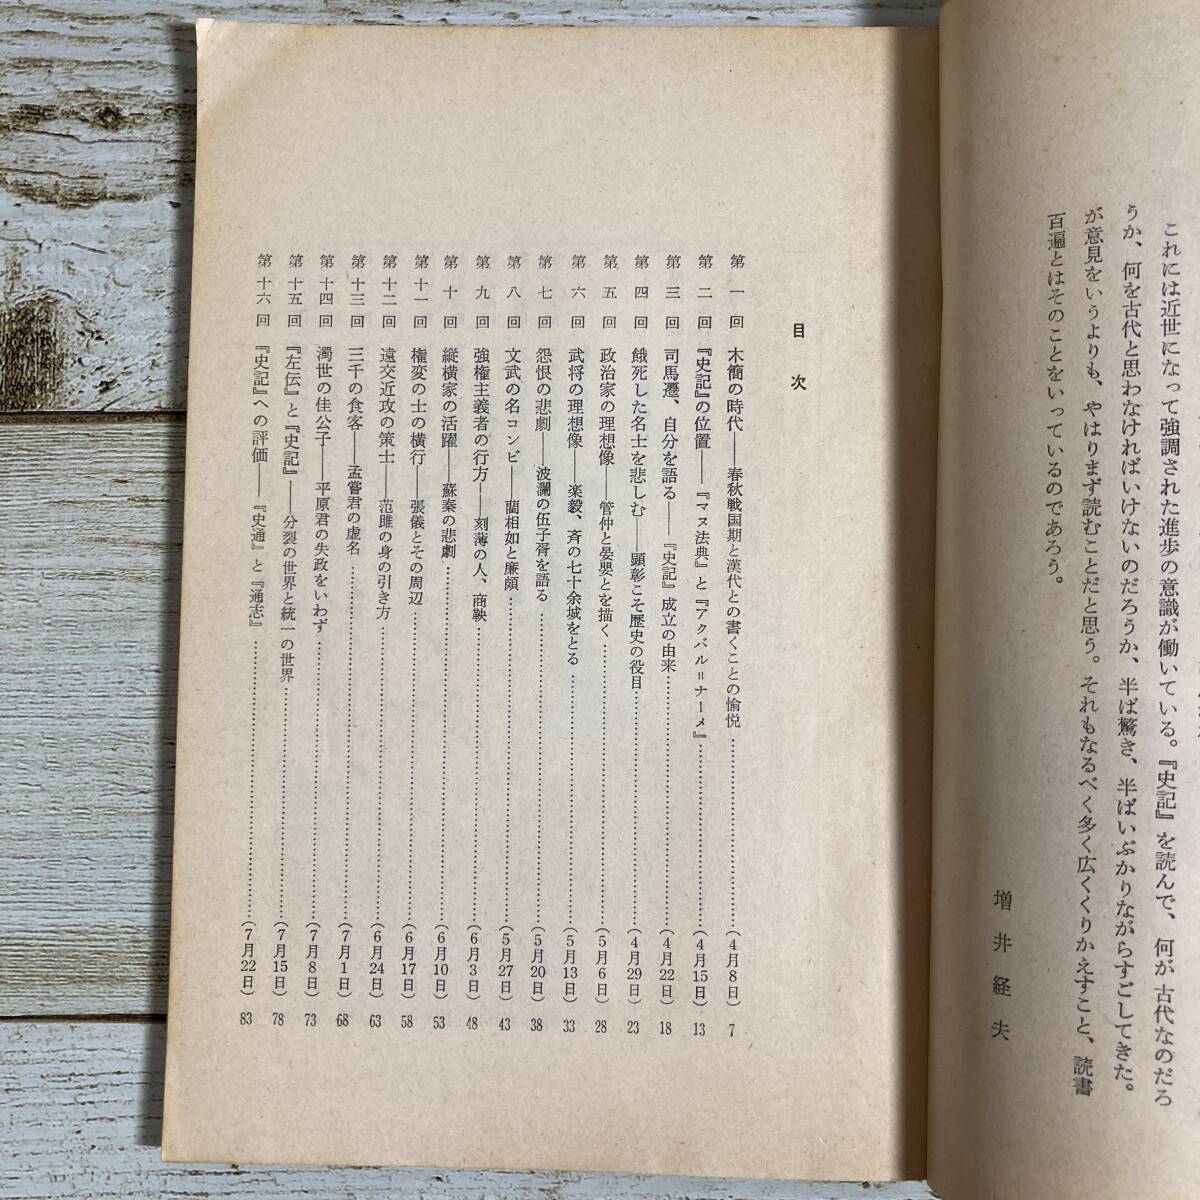 これには近世になって強調された進歩の意識が働いている。『史記』を読んで、何が古代なのだろ
うか、何を古代と思わなければいけないのだろうか、半ば驚き、半ばいぶかりながらすごしてきた。
が意見をいうよりも、やはりまず読むことだと思う。それもなるべく多く広くくりかえすこと、読書
百遍とはそのことをいっているのであろう。
増井経夫
目次
第一回 木簡の時代――春秋戦国期と漢代との書くことの愉悦……(4月8日) 7
第二回 『史記』の位置――『マヌ法典』と『アクバル＝ナーメ』……(4月15日) 13
第三回 司馬遷、自分を語る――『史記』成立の由来……(4月22日) 18
第四回 餓死した名士を悲しむ――顕彰こそ歴史の役目……(4月29日) 23
第五回 政治家の理想像――管仲と晏嬰とを描く……(5月6日) 28
第六回 武将の理想像――楽毅、斉の七十余城をとる……(5月13日) 33
第七回 怨恨の悲劇――波瀾の伍子胥を語る……(5月20日) 38
第八回 文武の名コンビ――藺相如と廉頗……(5月27日) 43
第九回 強権主義者の行方――刻薄の人、商鞅……(6月3日) 48
第十回 縦横家の活躍――蘇秦の悲劇……(6月10日) 53
第十一回 権変の士の横行――張儀とその周辺……(6月17日) 58
第十二回 遠交近攻の策士――范雎の身の引き方……(6月24日) 63
第十三回 三千の食客――孟嘗君の虚名……(7月1日) 68
第十四回 濁世の佳公子――平原君の失政をいわず……(7月8日) 73
第十五回 『左伝』と『史記』――分裂の世界と統一の世界……(7月15日) 78
第十六回 『史記』への評価――『史通』と『通志』……(7月22日) 83